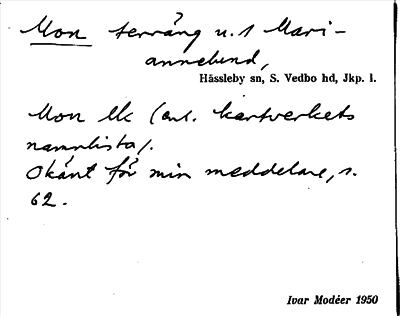 Mon terräng u. 1 Mari-
annelund,
Hässleby sn, S. Vedbo hd, Jkp. l.
Mon Uk (enl. kartverkets
namnlista).
Okänt för min meddelare, s.
62.
Ivar Modéer 1950